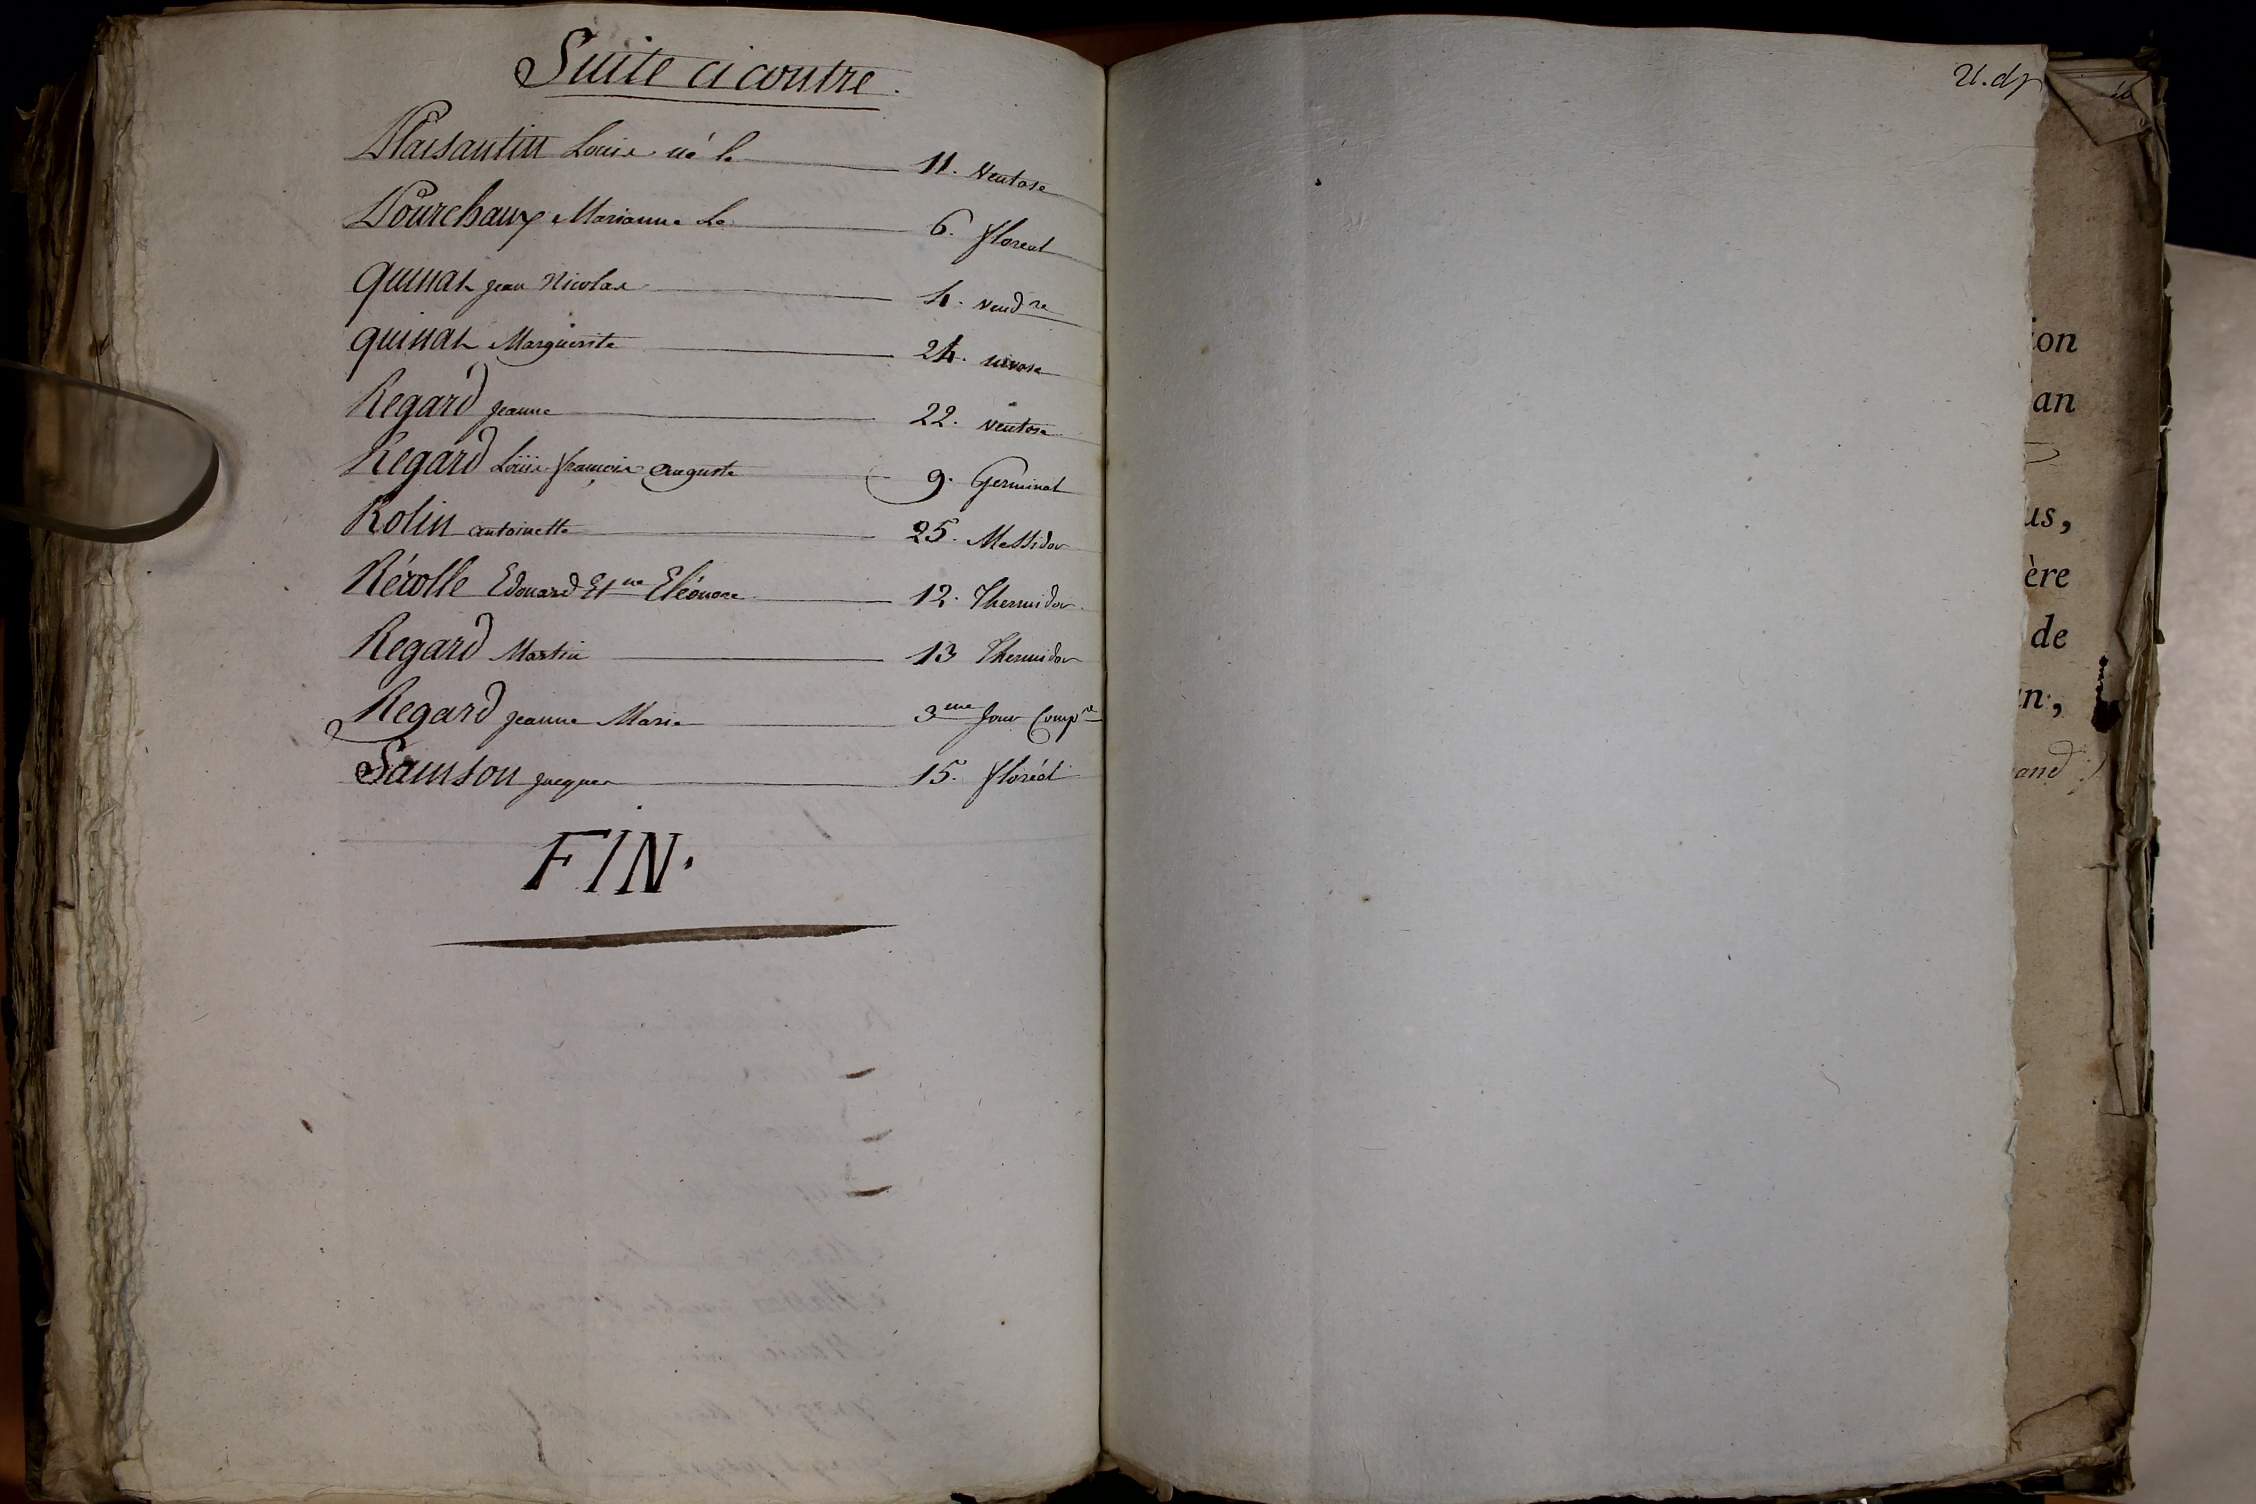 Suite ci contre.
Plaisantin Louis né le 11. Ventose
Pourchaux Marianne Le 6. floreal
quinat jean Nicolas 4. vend.re
quinat Marguerite 24. nivose
Regard jeanne 22. ventose
Regard Loüis françois auguste 9. Germinal
Rolin antoinette 25. Messidor
Rérolle Edouard Et.ne Eléonore 12. Thermidor
Regard Martin 13 Thermidor
Regard jeanne Marie 3me Jour Comp.re
Samson jacques 15. floréal
FIN.
ion
an
us,
ère
de
n,
and